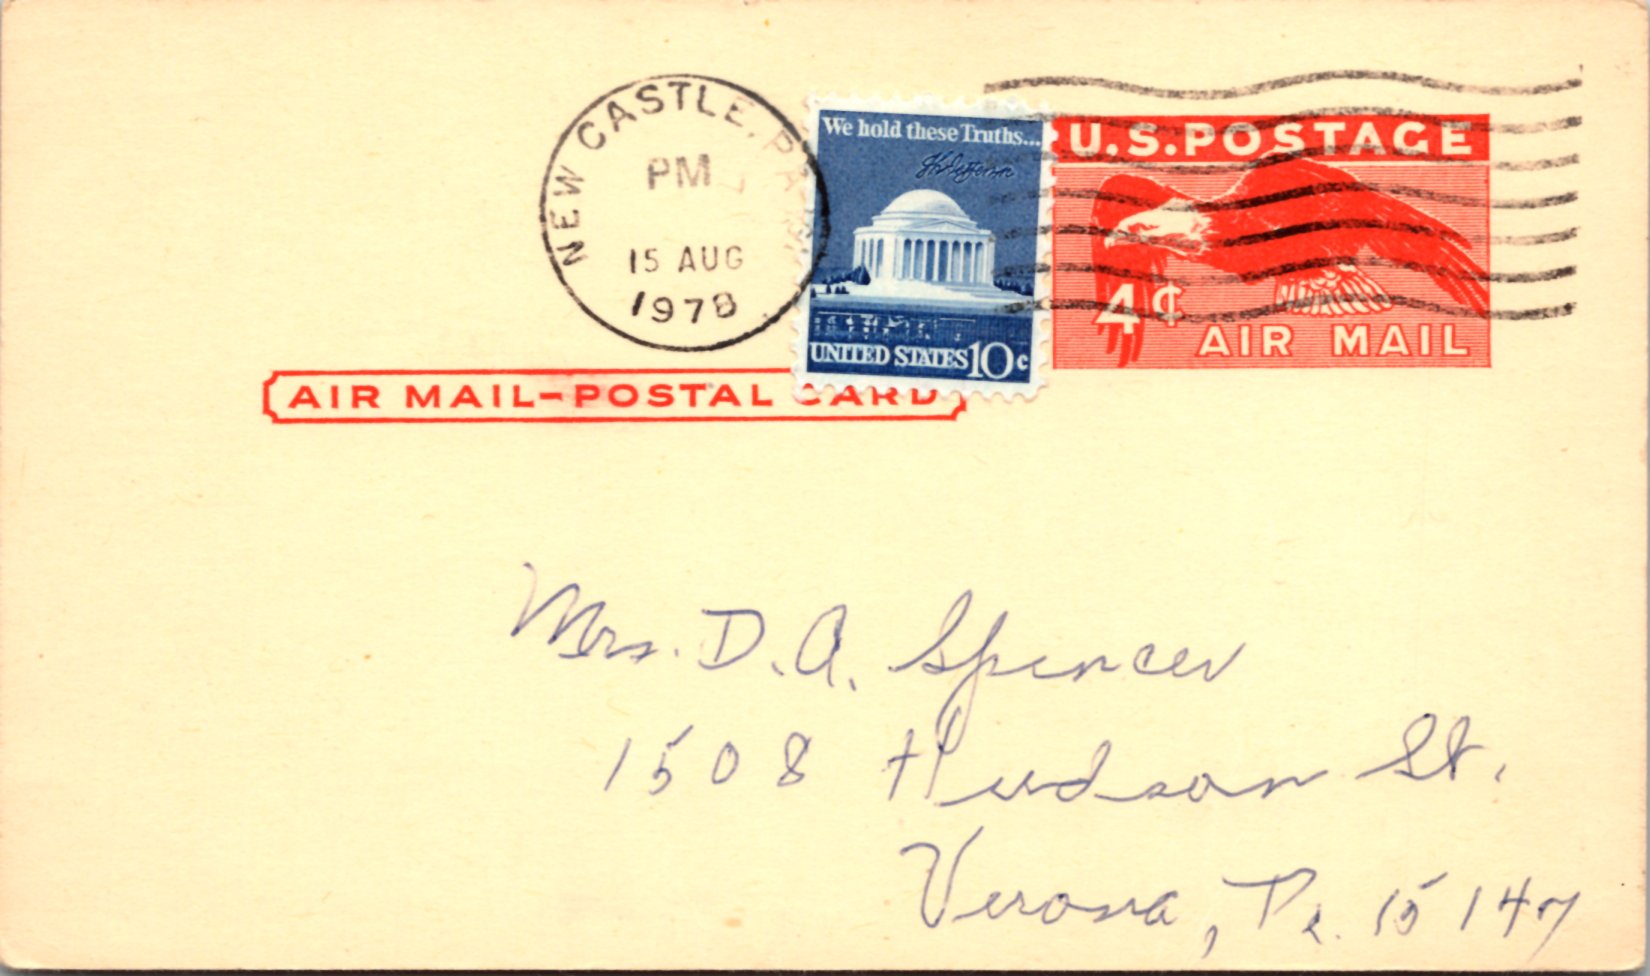 NEW CASTLE, PA
PM
15 AUG
1978
We hold these Truths...
Th Jefferson
UNITED STATES 10c
U.S. POSTAGE
4¢
AIR MAIL
AIR MAIL-POSTAL CARD
Mrs. D. A. Spencer
1508 Hudson St.
Verona, Pa. 15147